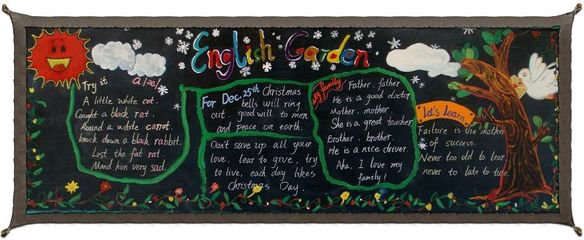 English Garden
Try it
a/æ/
A little white cat.
Caught a black rat.
Round a white carrot
knock down a black rabbit.
Lost the fat rat.
Mand him very sad.
For Dec. 25th Christmas
bells will ring
out good will to men
and peace on earth.
Don't save up all your
love, lear to give, try
to live, each day likes
Christmas Day.
My family
Father, father
He is a good doctor
Mother, mother.
She is a great teacher
Brother, brother.
He is a nice driver
Aha, I love my
family!
Let's Learn
Failure is the mother
of success.
Never too old to lear
never to late to turn